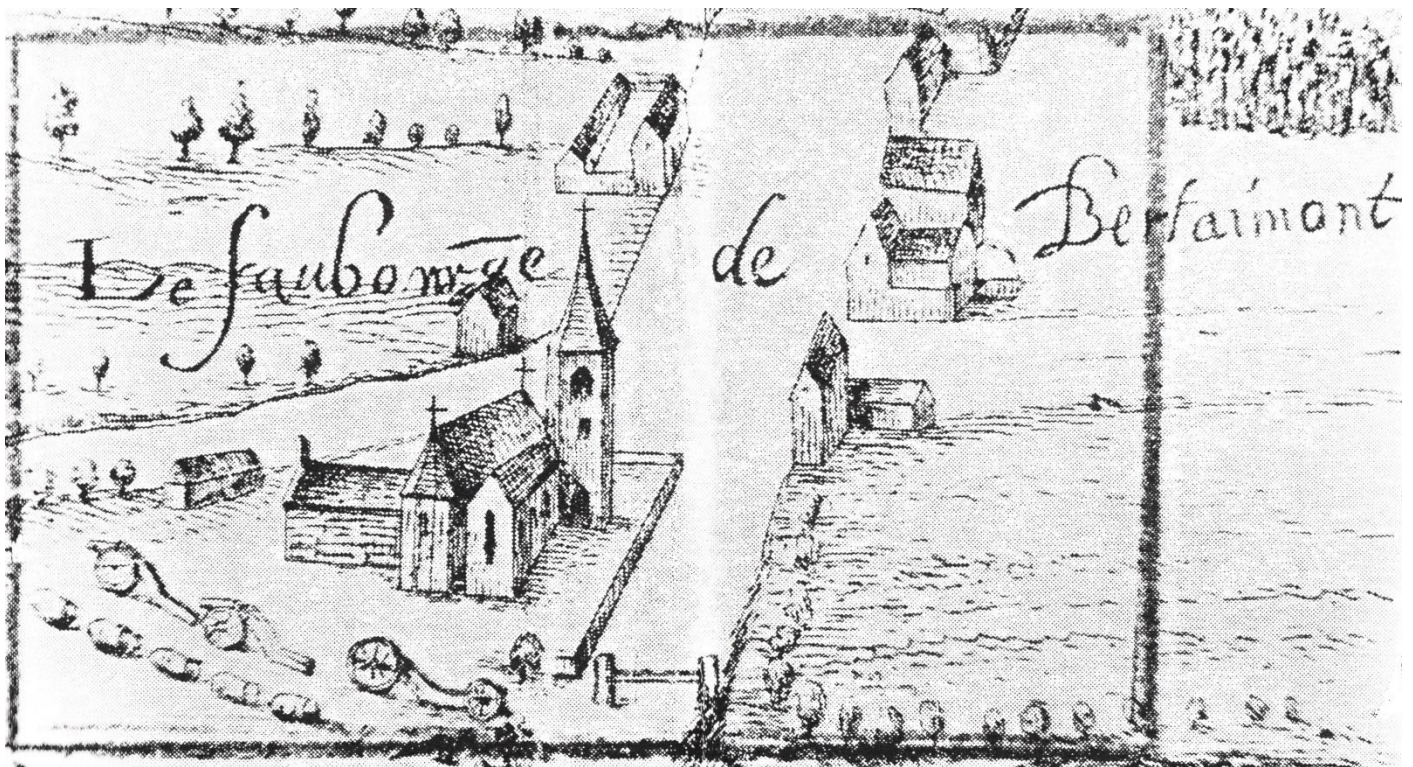 Le faubourge de Bertaimont